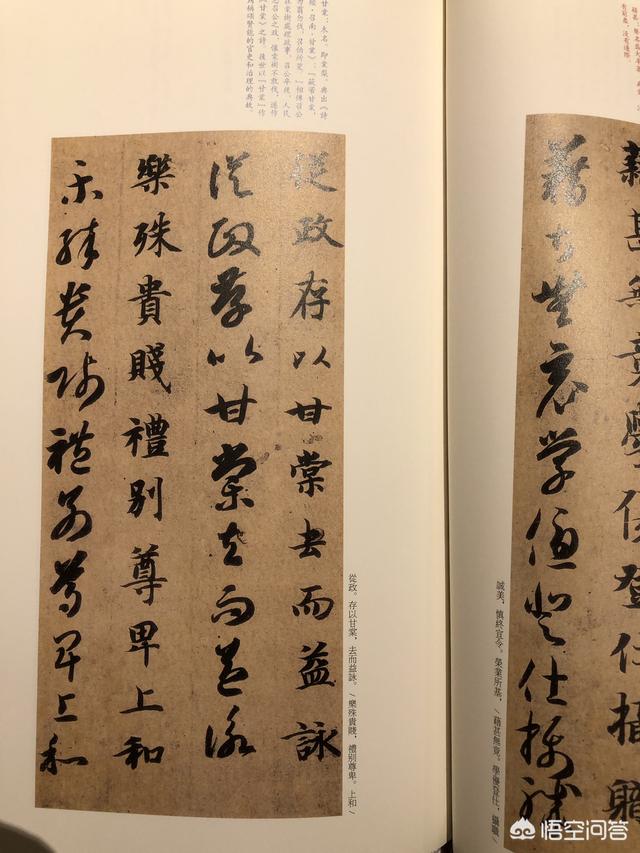 藉甚無竟學優登仕攝職
藉甚無竟學優登仕攝職
誠美，慎終宜令。榮業所基，/藉甚無竟。學優登仕，攝職/
甘棠：木名，即棠梨。典出《詩
召南·甘棠》：「蔽芾甘棠，
勿伐，召伯所茇。」相傳召公
棠樹處理政事，召公卒後，人民
召公之政，懷棠樹不敢伐，遂作
甘棠》之詩。後世以「甘棠」作
稱頌賢能的官吏和治理的典故。
從政存以甘棠去而益詠
從政存以甘棠去而益詠
樂殊貴賤禮別尊卑上和
樂殊貴賤禮別尊卑上和
從政。存以甘棠，去而益詠。/樂殊貴賤，禮別尊卑。上和/
悟空问答